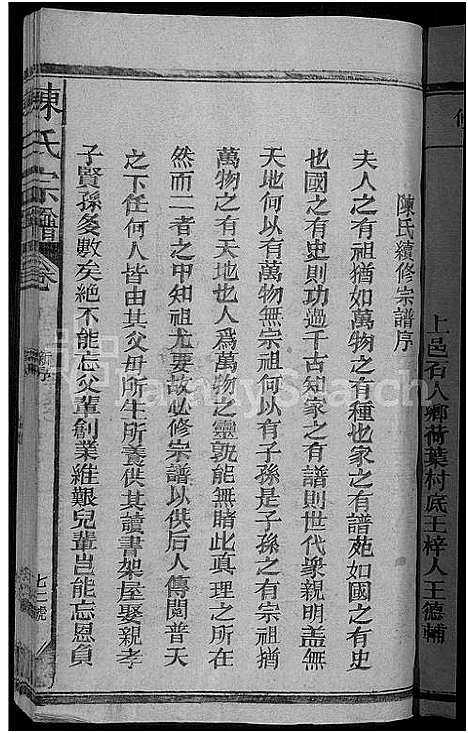 上邑石人鄉荷葉村底王梓人王德輔
陳氏續修宗譜序
夫人之有祖猶如萬物之有種也家之有譜苑如國之有史
也國之有史則功過千古知家之有譜則世代衆親明盖無
天地何以有萬物無宗祖何以有子孫是子孫之有宗祖猶
萬物之有天地也人爲萬物之靈孰能無賭此真理之所在
然而二者之中知祖尤要故必修宗譜以供后人傳閲普天
之下任何人皆由其父母所生所養供其讀書架屋娶親孝
子賢孫多數矣絶不能忘父輩創業維艱兒輩豈能忘恩負
陳氏宗譜 卷
新序
七二號